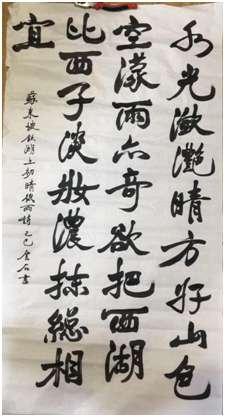 水光瀲灩晴方好山色
空濛雨亦奇欲把西湖
比西子淡妝濃抹總相
宜
蘇東坡飲湖上初晴後雨詩 金石書